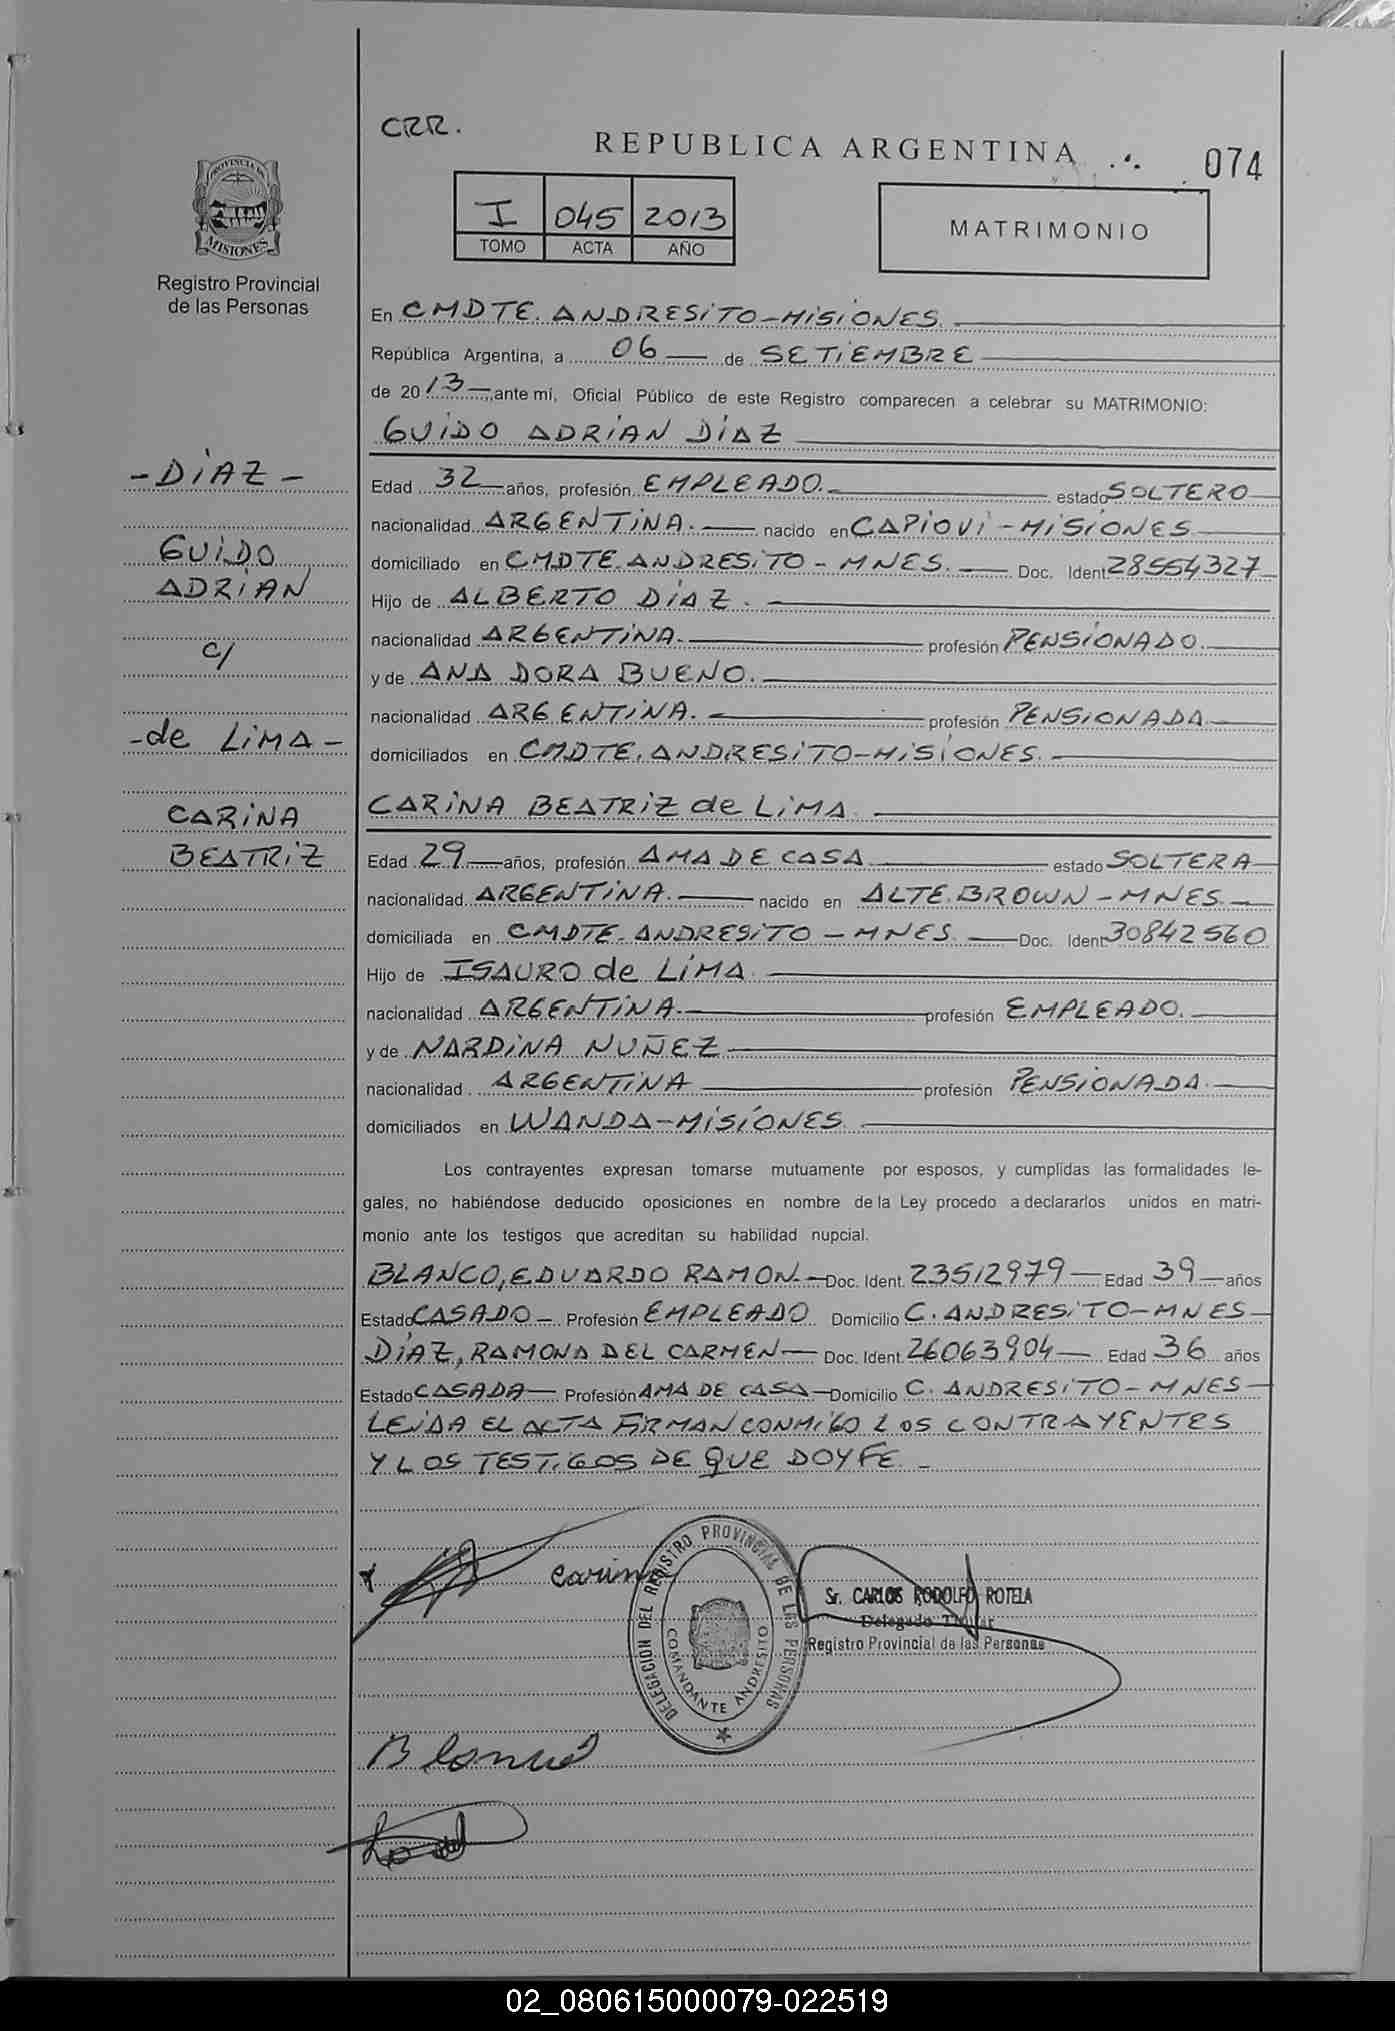 CRR.
REPUBLICA ARGENTINA
074
PROVINCIA DE
MISIONES
Registro Provincial
de las Personas
I 045 2013
TOMO ACTA AÑO
MATRIMONIO
En CMDTE. ANDRESiTO-MiSiONES.
República Argentina, a 06 de SETiEMBRE
de 2013 ,ante mi, Oficial Público de este Registro comparecen a celebrar su MATRIMONIO:
GUiDO ADRiAN DiAZ
-DiAZ-
GUiDO
ADRiAN
c/
-de LiMA-
CARiNA
BEATRiZ
Edad 32 años, profesión EMPLEADO. estado SOLTERO
nacionalidad ARGENTiNA. nacido en CAPiOVi-MiSiONES
domiciliado en CMDTE. ANDRESiTO - MNES. Doc. Ident 28554327
Hijo de ALBERTO DiAZ.
nacionalidad ARGENTiNA. profesión PENSiONADO.
y de ANA DORA BUENO.
nacionalidad ARGENTiNA. profesión PENSiONADA
domiciliados en CMDTE. ANDRESiTO-MiSiONES.
CARiNA BEATRiZ de LiMA.
Edad 29 años, profesión AMA DE CASA estado SOLTERA
nacionalidad ARGENTiNA. nacido en ALTE. BROWN - MNES.
domiciliada en CMDTE. ANDRESiTO - MNES. Doc. Ident 30842560
Hijo de ISAURO de LiMA.
nacionalidad ARGENTiNA. profesión EMPLEADO.
y de NARDiNA NUÑEZ
nacionalidad ARGENTiNA profesión PENSiONADA.
domiciliados en WANDA-MiSiONES
Los contrayentes expresan tomarse mutuamente por esposos, y cumplidas las formalidades le-
gales, no habiéndose deducido oposiciones en nombre de la Ley procedo a declararlos unidos en matri-
monio ante los testigos que acreditan su habilidad nupcial.
BLANCO, EDUARDO RAMON. Doc. Ident. 23512979 Edad 39 años
Estado CASADO Profesión EMPLEADO Domicilio C. ANDRESiTO-MNES
DiAZ, RAMONA DEL CARMEN Doc. Ident. 26063904 Edad 36 años
Estado CASADA Profesión AMA DE CASA Domicilio C. ANDRESiTO-MNES
LEiDA EL ACTA FiRMAN CONMiGO LOS CONTRAYENTES
Y LOS TESTiGOS DE QUE DOY FE.
Carina
DELEGACION DEL REGISTRO PROVINCIAL DE LAS PERSONAS
COMANDANTE ANDRESITO
Sr. CARLOS RODOLFO ROTELA
Delegado Titular
Registro Provincial de las Personas
Blanco
02_080615000079-022519